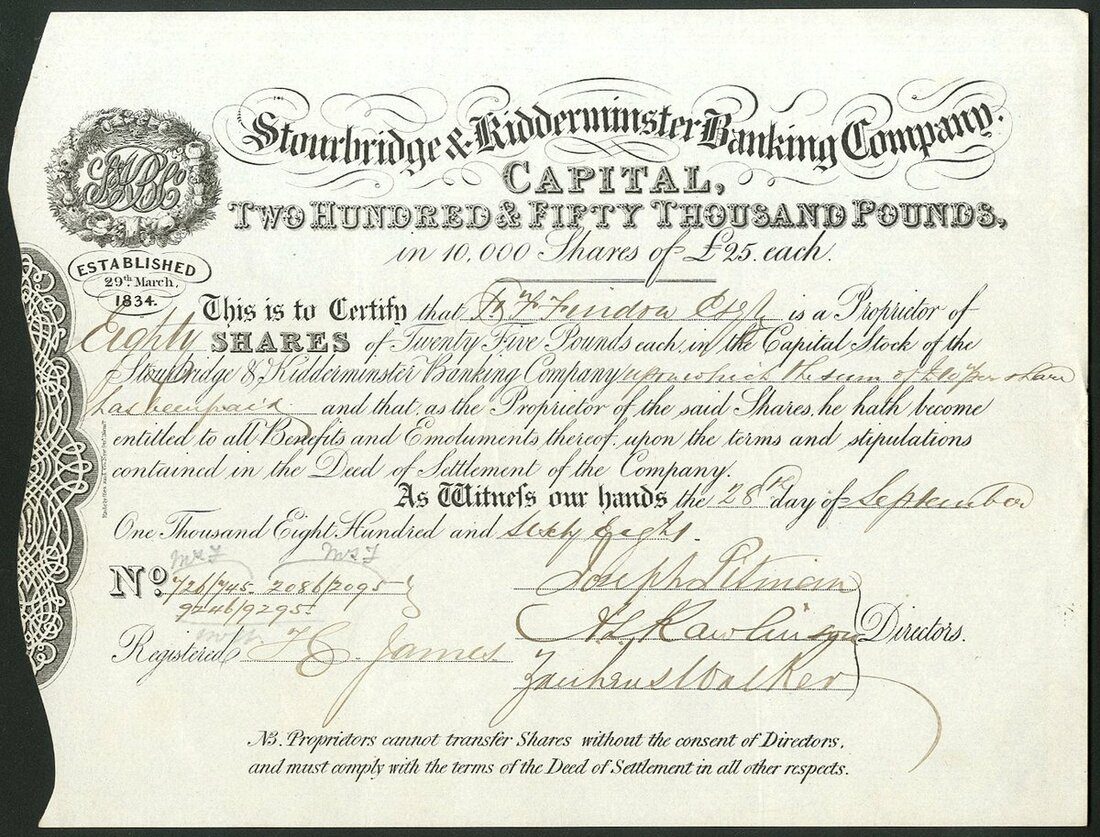 Stourbridge & Kidderminster Banking Company.
CAPITAL,
TWO HUNDRED & FIFTY THOUSAND POUNDS,
in 10,000 Shares of £25. each.
S&KBC
ESTABLISHED
29th March,
1834.
This is to Certify that Esqr is a Proprietor of
Eighty SHARES of Twenty Five Pounds each, in the Capital Stock of the
Stourbridge & Kidderminster Banking Company upon which the sum of £10 per share
has been paid and that, as the Proprietor of the said Shares, he hath become
entitled to all Benefits and Emoluments thereof, upon the terms and stipulations
contained in the Deed of Settlement of the Company.
As Witness our hands the 28th day of September
One Thousand Eight Hundred and sixty eight.
No. 726/745. 2086/2095
9246/9295.
Joseph Pitman
Rawlinson Directors.
Registered, James
Walker
NB. Proprietors cannot transfer Shares without the consent of Directors,
and must comply with the terms of the Deed of Settlement in all other respects.